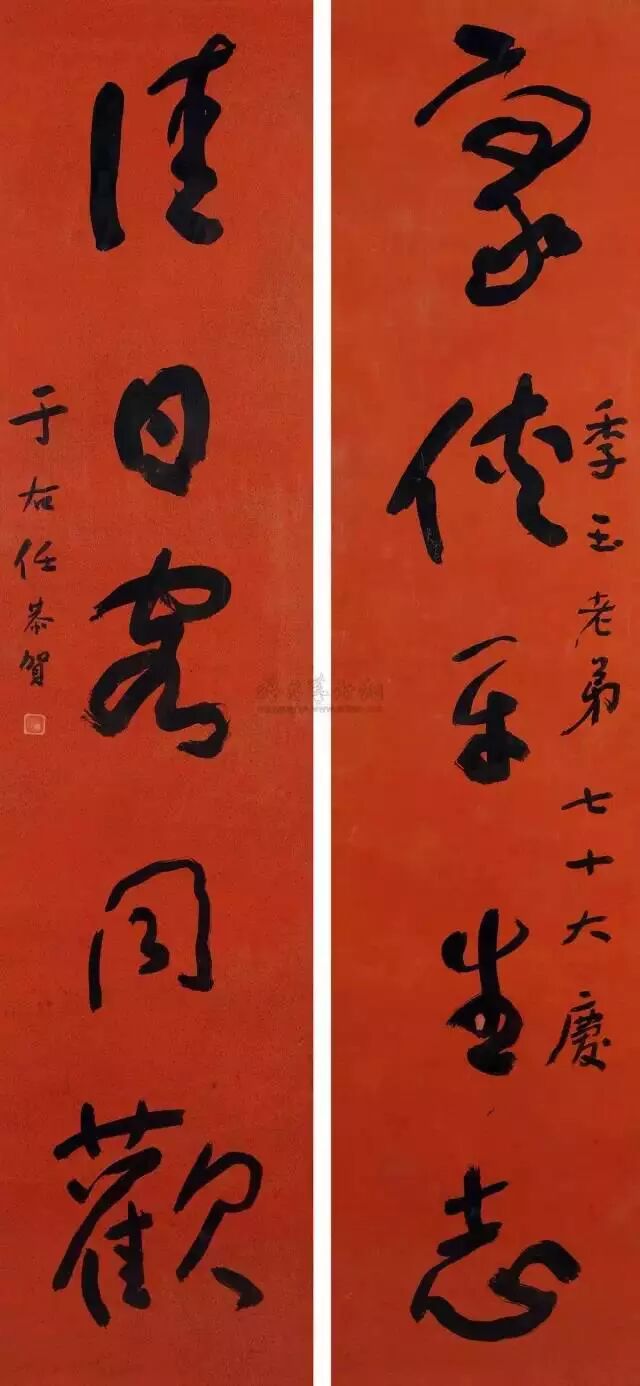 豪俠平生志
季玉老弟七十大慶
佳日客同歡
于右任恭賀